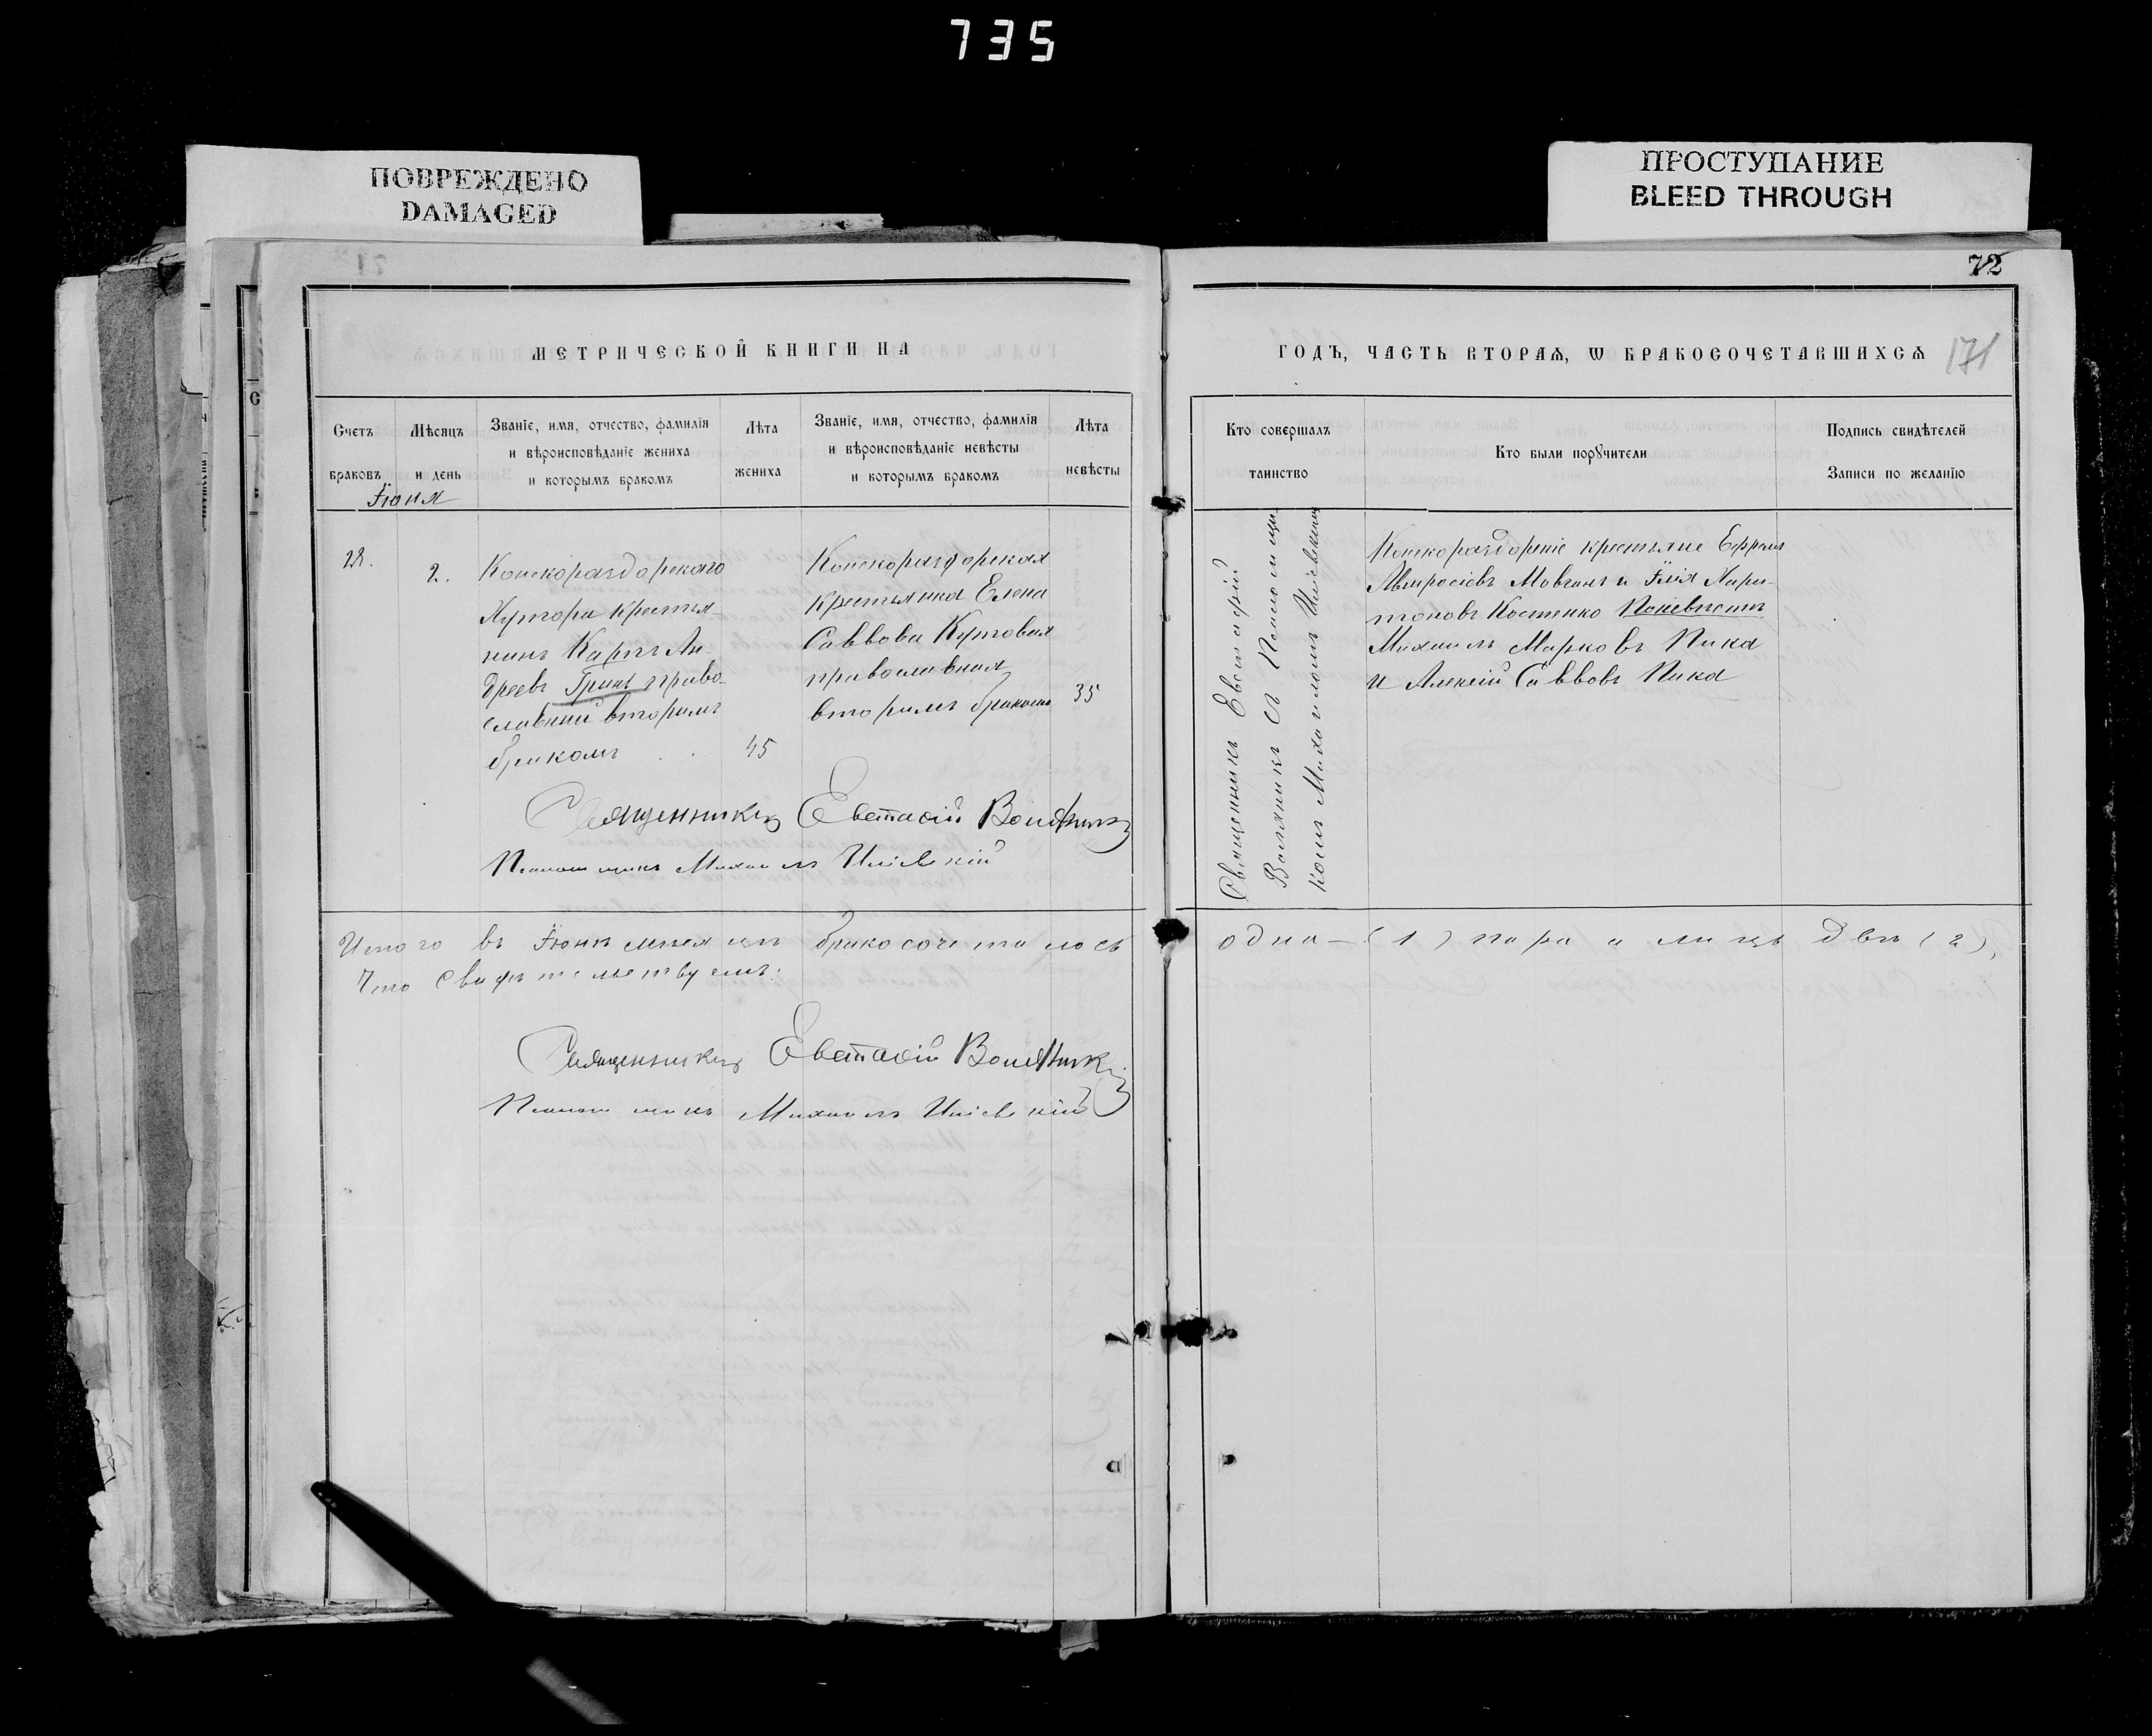 735
ПОВРЕЖДЕНО
DAMAGED
ПРОСТУПАНИЕ
BLEED THROUGH
72
171
МЕТРИЧЕСКОЙ КНИГИ НА
Счетъ
браковъ
Мѣсяцъ
и день
Званіе, имя, отчество, фамилія
и вѣроисповѣданіе жениха
и которымъ бракомъ
Лѣта
жениха
Званіе, имя, отчество, фамилія
и вѣроисповѣданіе невѣсты
и которымъ бракомъ
Лѣта
невѣсты
Іюня
28.
2.
Конскораздорскаго
Хутора крестья-
нинъ Карпъ Ан-
дреевъ Гринь право-
славный вторымъ
бракомъ
45
Конскораздорская
крестьянка Елена
Саввова Кутовая
православная
вторымъ бракомъ
35
Священникъ Евстафій
Псаломщикъ Михаилъ
Итого въ Іюнѣ мѣсяцѣ бракосочеталось
Что свидѣтельствуемъ:
Священникъ Евстафій
Псаломщикъ Михаилъ
ГОДЪ, ЧАСТЬ ВТОРАЯ, Ѡ БРАКОСОЧЕТАВШИХСЯ
Кто совершалъ
таинство
Кто были порꙋчители
Подпись свидѣтелей
Записи по желанію
Священникъ Евстафій
съ Псаломщи-
комъ Михаиломъ
Конскораздорскіе крестьяне Ефремъ
Амвросіевъ Мовчанъ и Илія Хари-
тоновъ Костенко По невѣстѣ
Михаилъ Марковъ Пика
и Алексій Саввовъ Пика
одна - (1) пара а лицъ двѣ (2),